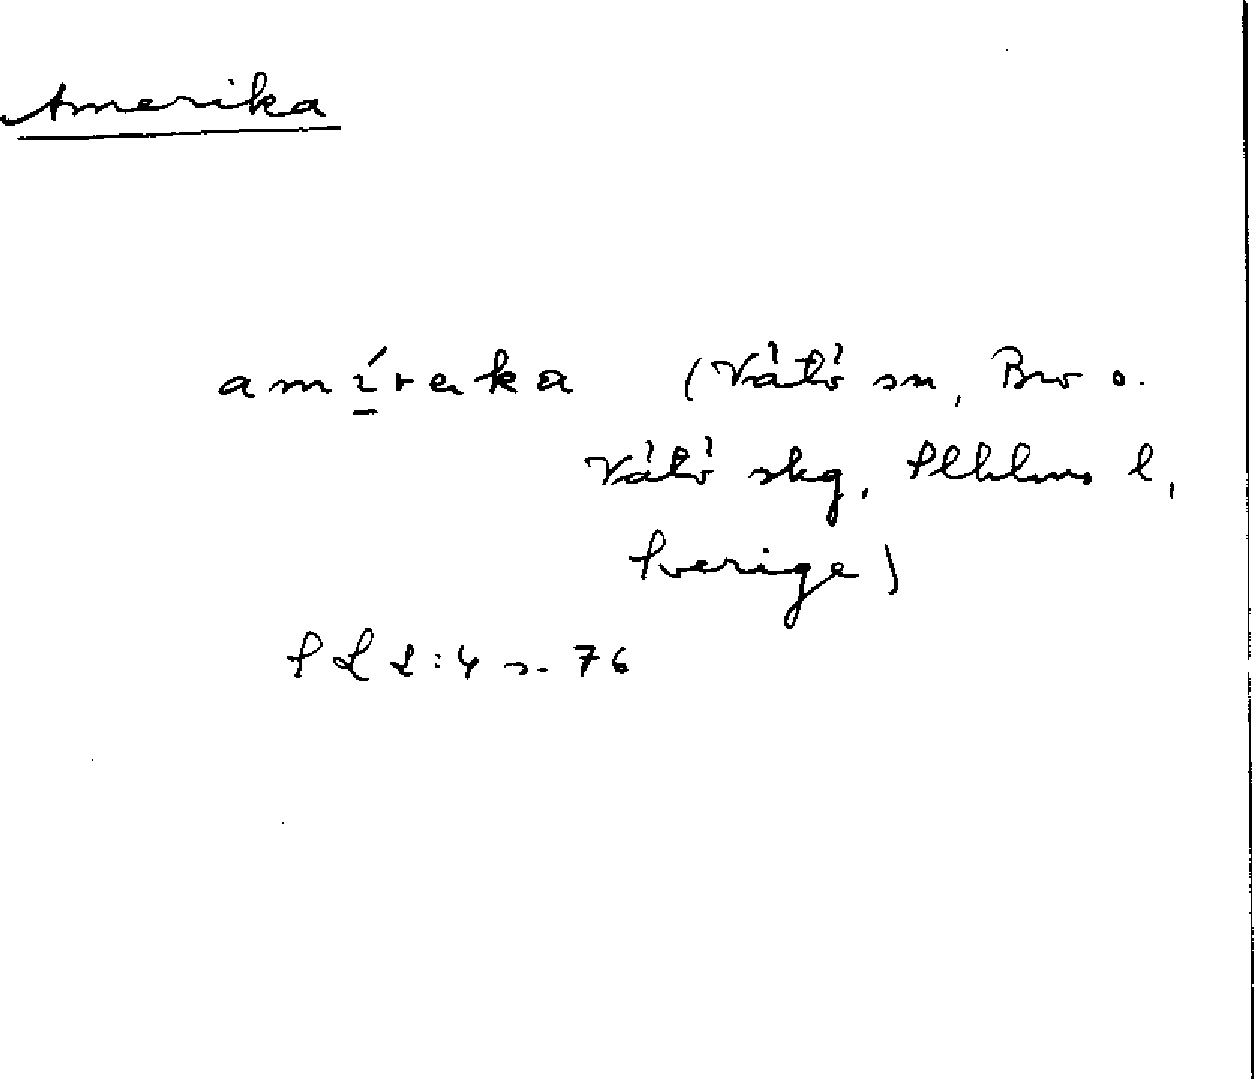 Amerika
amíraka (Vätö sn, Bro o.
Vätö skg, Sthlms l,
Sverige)
S L 2:4 s. 76